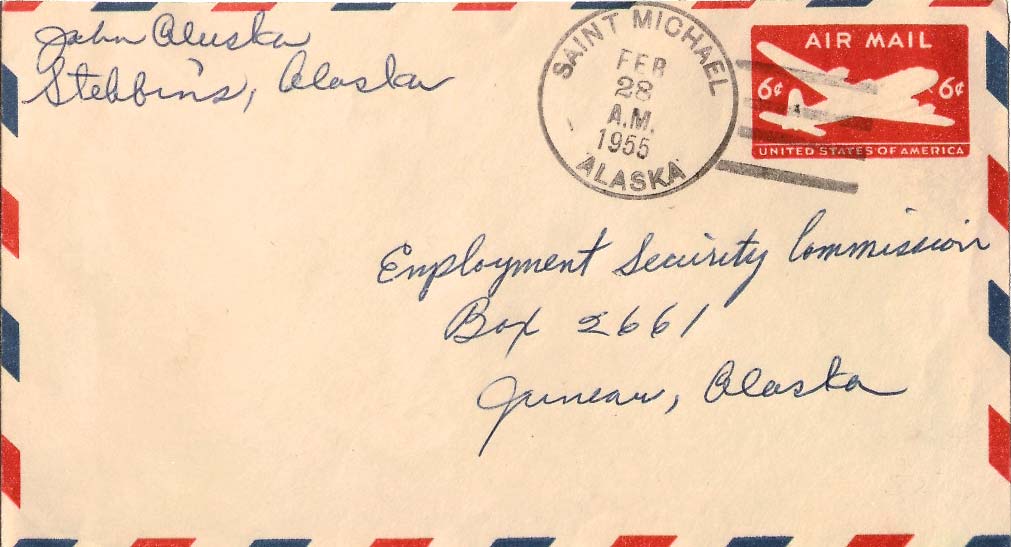 John Aluska
Stebbins, Alaska
SAINT MICHAEL
FEB
28
A.M.
1955
ALASKA
AIR MAIL
6¢ 6¢
UNITED STATES OF AMERICA
Employment Security Commission
Box 2661
Juneau, Alaska